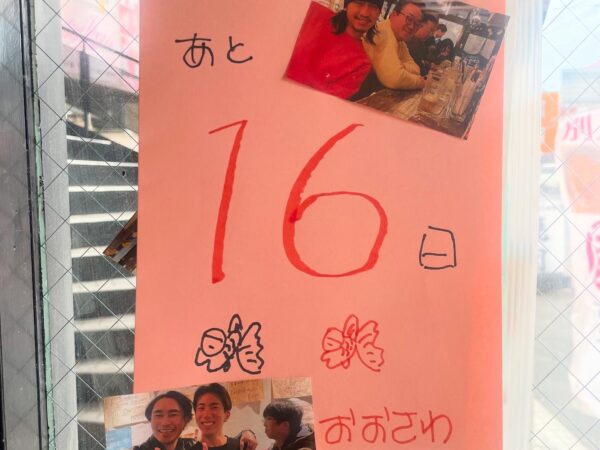 あと
16
日
おおさわ
別